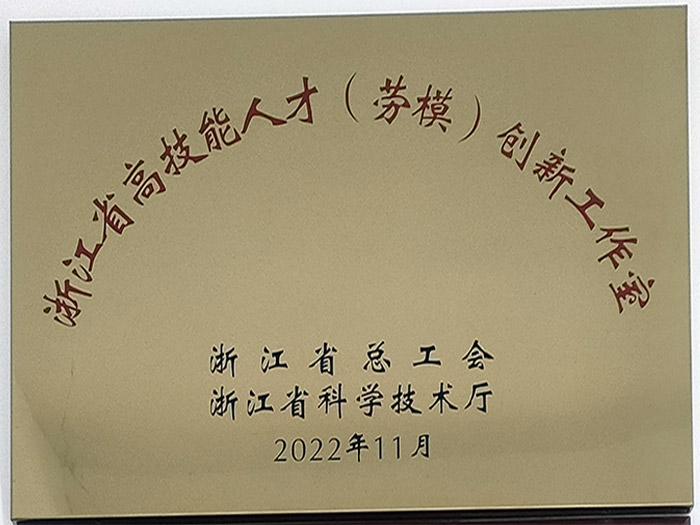 浙江省高技能人才（劳模）创新工作室
浙江省总工会
浙江省科学技术厅
2022年11月